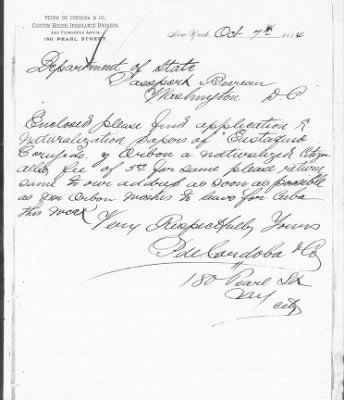 PEDRO DE CORDOBA & CO.,
CUSTOM HOUSE, INSURANCE BROKERS,
And Forwarding Agents,
180 PEARL STREET.
New York, Oct 7th
Department of State
Passport Bureau
Washington D C
Enclosed please find application &
naturalization papers of Eustaquio
y Orbon a naturalized Citizen
also fee of for same please return
same to our address as soon as possible
as Mr Orbon wishes to leave for Cuba
this week
Very Respectfully Yours
P de Cordoba & Co
180 Pearl St
N Y
City